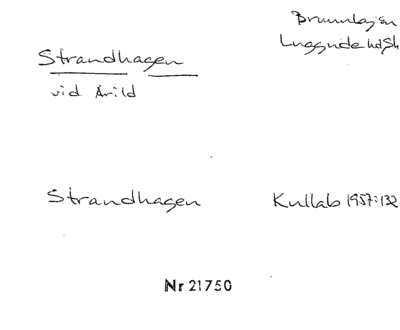 Brunnby sn
Luggude hd Sk
Strandhagen
vid Arild
Strandhagen
Kullab 1957:132
Nr 21750